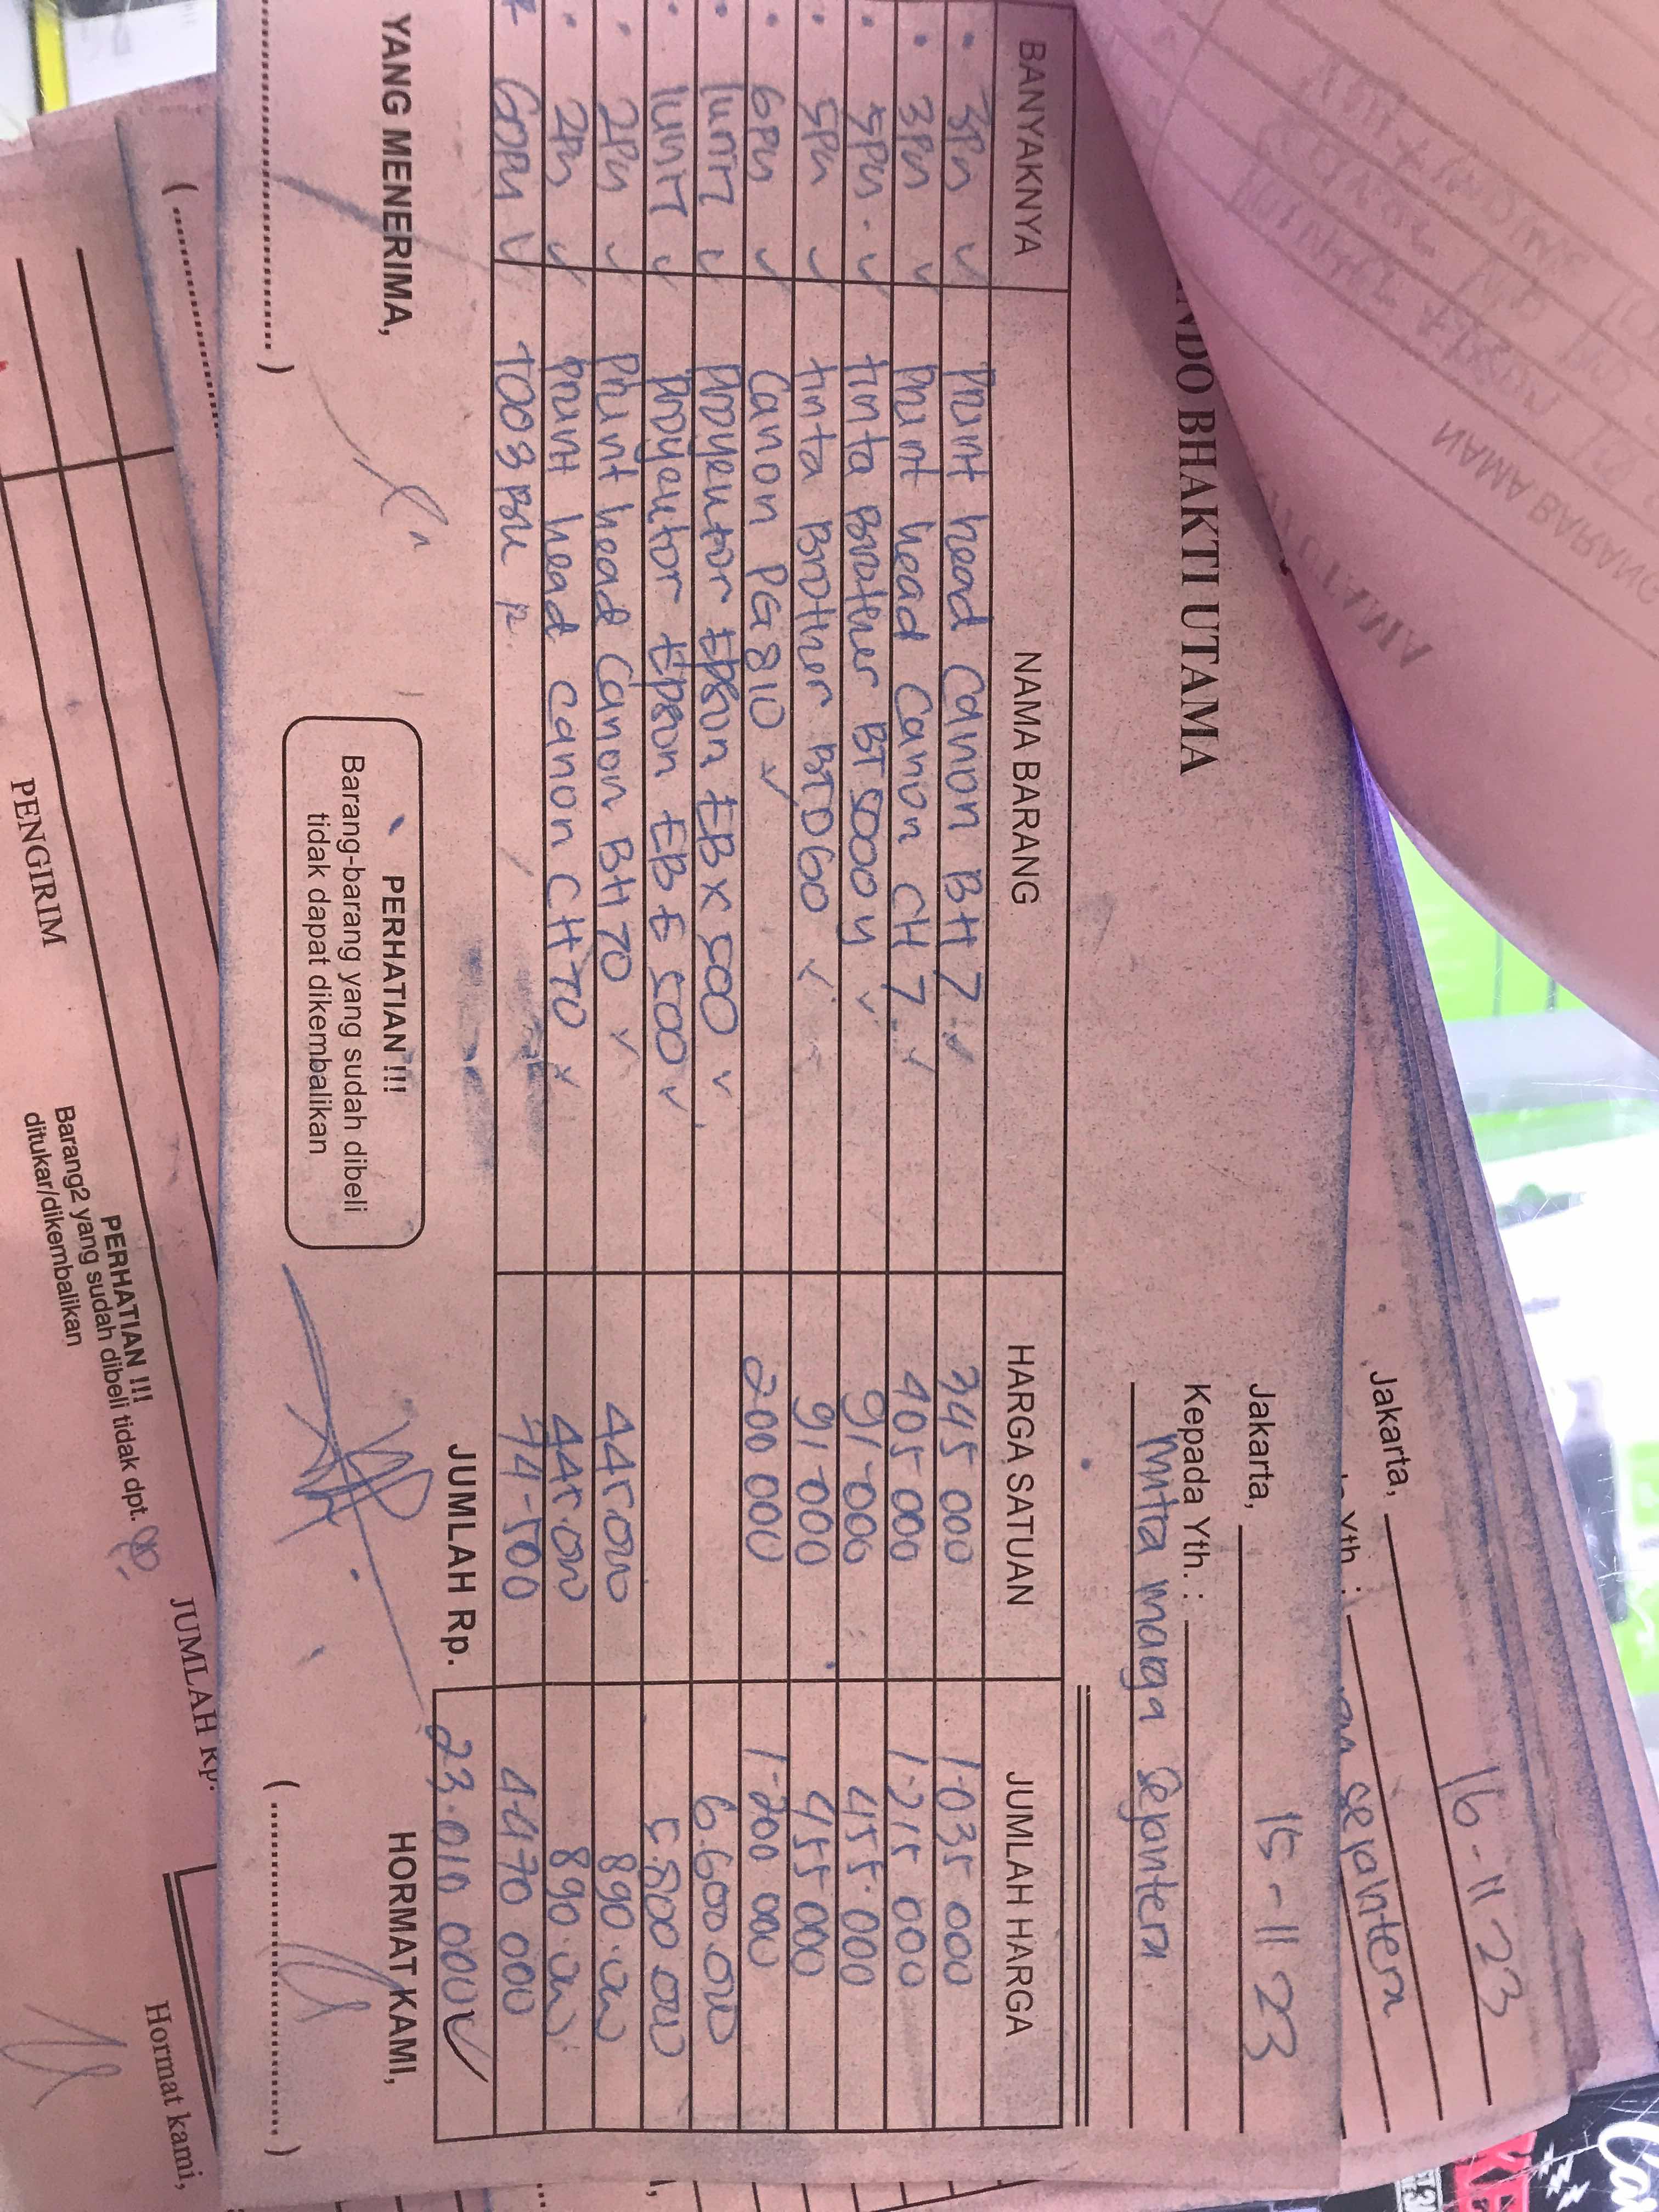 NDO BHAKTI UTAMA
Jakarta, 15-11 23
Kepada Yth. :
Mitta marga Sejantera.
BANYAKNYA NAMA BARANG HARGA SATUAN JUMLAH HARGA
3pcs Print head Canon BH 7 345 000 1.035 000
3pcs Print head Canon CH 7 405 000 1.215 000
5pcs tinta Brother BT 5000 y 91.000 455.000
5pcs tinta Brother BTD60 91.000 455 000
6pcs Canon PG 810 200 000 1.200 000
1unit Proyektor Epson EB X 500 6.600.000
1unit Proyektor Epson EB E 500 5.800 000
2pcs Print head Canon BH 70 445 000 890.000
2pcs Print head Canon CH 70 445.000 890.000
60pcs T003 BLK 74-500 4.470 000
JUMLAH Rp. 23.010 000
YANG MENERIMA,
PERHATIAN !!!
Barang-barang yang sudah dibeli
tidak dapat dikembalikan
HORMAT KAMI,
(....................)
(....................)
Jakarta, 16-11 23
Yth :
sejantera
NAMA BARANG
UTAMA
PENGIRIM
PERHATIAN !!!
Barang2 yang sudah dibeli tidak dpt.
ditukar/dikembalikan
JUMLAH Rp.
Hormat kami,